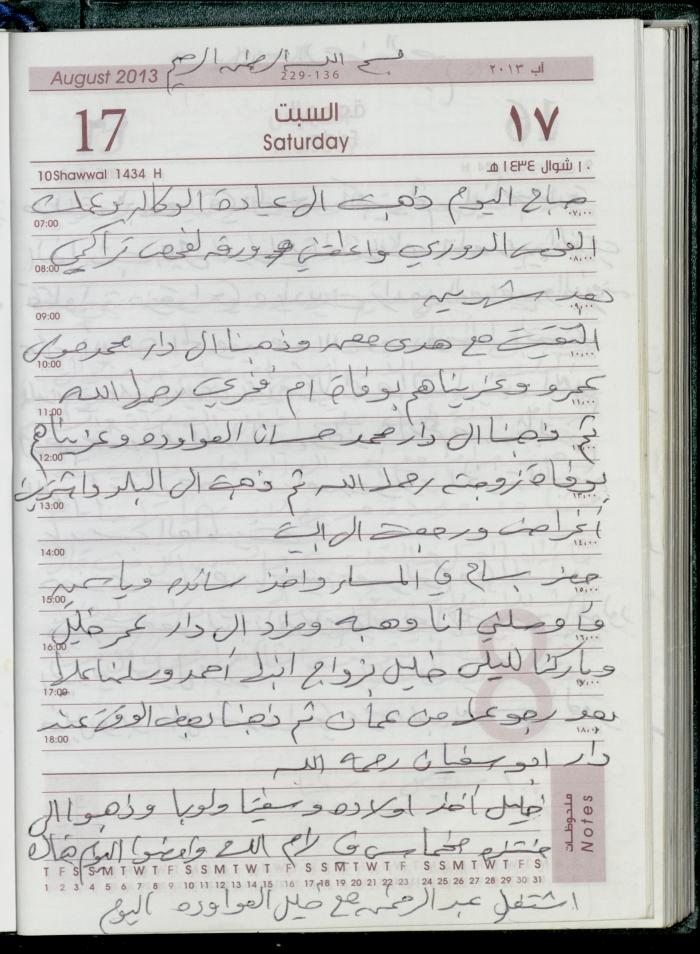 بسم الله الرحمن الرحيم
August 2013
229-136
آب ٢٠١٣
17
السبت
Saturday
١٧
10Shawwal 1434 H
١٠ شوال ١٤٣٤هـ
صباح اليوم ذهبت الى عيادة الوكاله وعملت
07:00
٠٧,٠٠
الفحص الدوري واعطتني ورقه لفحص تراكمي
08:00
٠٨,٠٠
بعد شهرين
09:00
٠٩,٠٠
التقيت مع هدى وذهبنا الى دار محمد موسى
10:00
١٠,٠٠
عمرو وعزيناهم بوفاة ام فخري رحمها الله
11:00
١١,٠٠
ثم ذهبنا الى دار محمد حسان العواوده وعزيناهم
12:00
١٢,٠٠
بوفاة زوجته رحمها الله ثم ذهبت الى البلد واشتريت
13:00
١٣,٠٠
أغراض ورجعت الى البيت
14:00
١٤,٠٠
حضر بسام في المساء واخذ سائده وياسمين
15:00
١٥,٠٠
فأوصلني انا وهبه ومراد الى دار عمر خليل
16:00
١٦,٠٠
وباركنا خليل بزواج ابنه أحمد وسلمنا
17:00
١٧,٠٠
بعد رجوع من عمان ثم ذهبنا بعض الوقت عند
18:00
١٨,٠٠
دار ابو سفيان رحمه الله
خليل أخذ اولاده وذهبوا الى
منتزه في رام الله وامضوا اليوم هناك
ملحوظات
Notes
T F S S M T W T F S S M T W T F S S M T W T F S S M T W T F S
1 2 3 4 5 6 7 8 9 10 11 12 13 14 15 16 17 18 19 20 21 22 23 24 25 26 27 28 29 30 31
اشتغل عبد الرحمن مع خليل العواوده اليوم